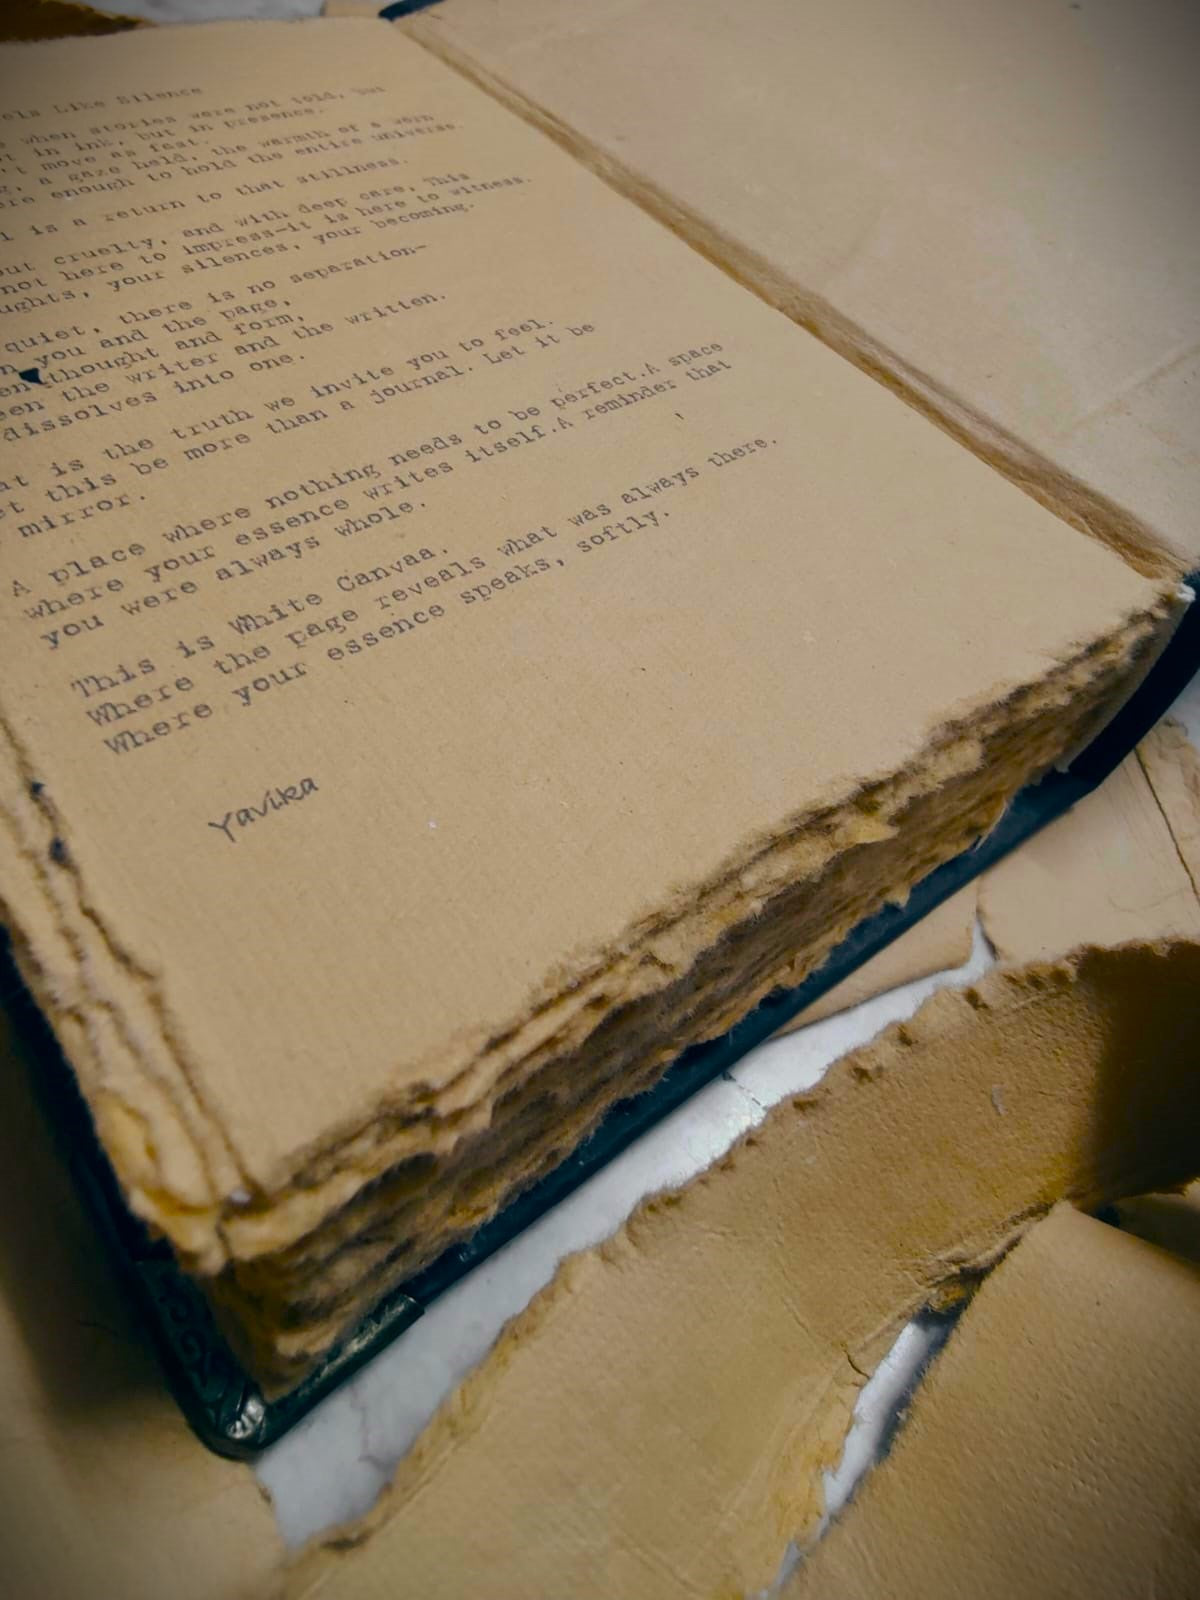 Like Silence
when stories were not told, but
in ink, but in presence.
move as fast.
a gaze held, the warmth of a worn
enough to hold the entire universe.
is a return to that stillness.
cruelty, and with deep care, This
not here to impress—it is here to witness.
your silences, your becoming.
quiet, there is no separation—
you and the page,
thought and form,
the writer and the written.
dissolves into one.
is the truth we invite you to feel.
this be more than a journal. Let it be
mirror.
A place where nothing needs to be perfect.A space
where your essence writes itself.A reminder that
you were always whole.
This is White Canvaa.
Where the page reveals what was always there.
Where your essence speaks, softly.
Yavika